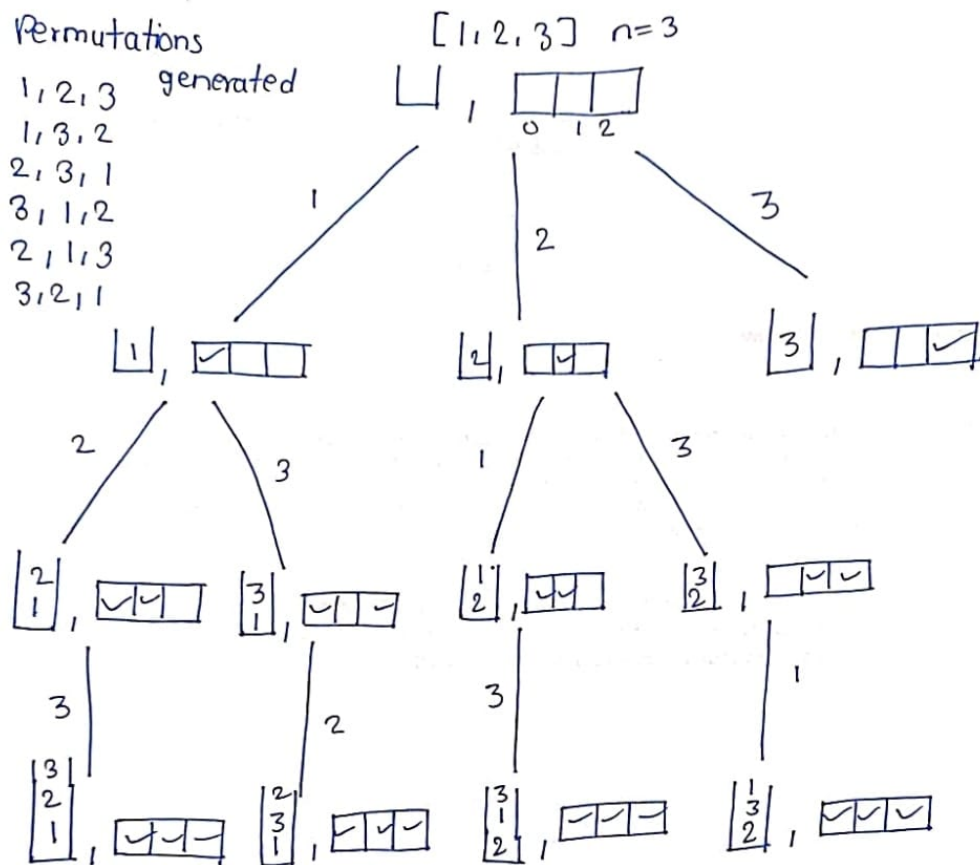 Permutations
generated
1, 2, 3
1, 3, 2
2, 3, 1
3, 1, 2
2, 1, 3
3, 2, 1
[1, 2, 3] n=3
,
0 1 2
1
2
3
1 ,
2 ,
3 ,
2
3
1
3
2
1 ,
3
1 ,
1
2 ,
3
2 ,
3
2
3
1
3
2
1 ,
2
3
1 ,
3
1
2 ,
1
3
2 ,